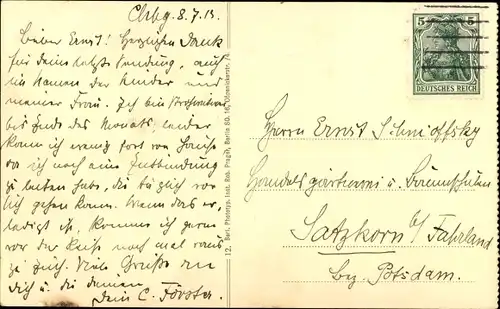 Chbg. 8.7.13.
Lieber Ernst! Herzlichen Dank
für Deine letzte Sendung, auch
im Namen der Kinder und
meiner Frau. Ich bin
bis Ende des Monats, leider
kann ich wenig fort von Hause
da ich noch eine Entbindung
zu leiten habe, die täglich vor
sich gehen kann. Wenn das er-
ledigt ist, komme ich gerne
vor der Reise noch mal raus
zu Euch. Viele Grüße an
Dich u. die Damen
Dein C. Förster.
12. Berl. Phototyp. Inst. Rob. Prager, Berlin SO. 16,
5 5
DEUTSCHES REICH
Herrn Ernst Schmidt
Handelsgärtnerei u. Baumschulen
Satzkorn b/ Fahrland
bez. Potsdam.